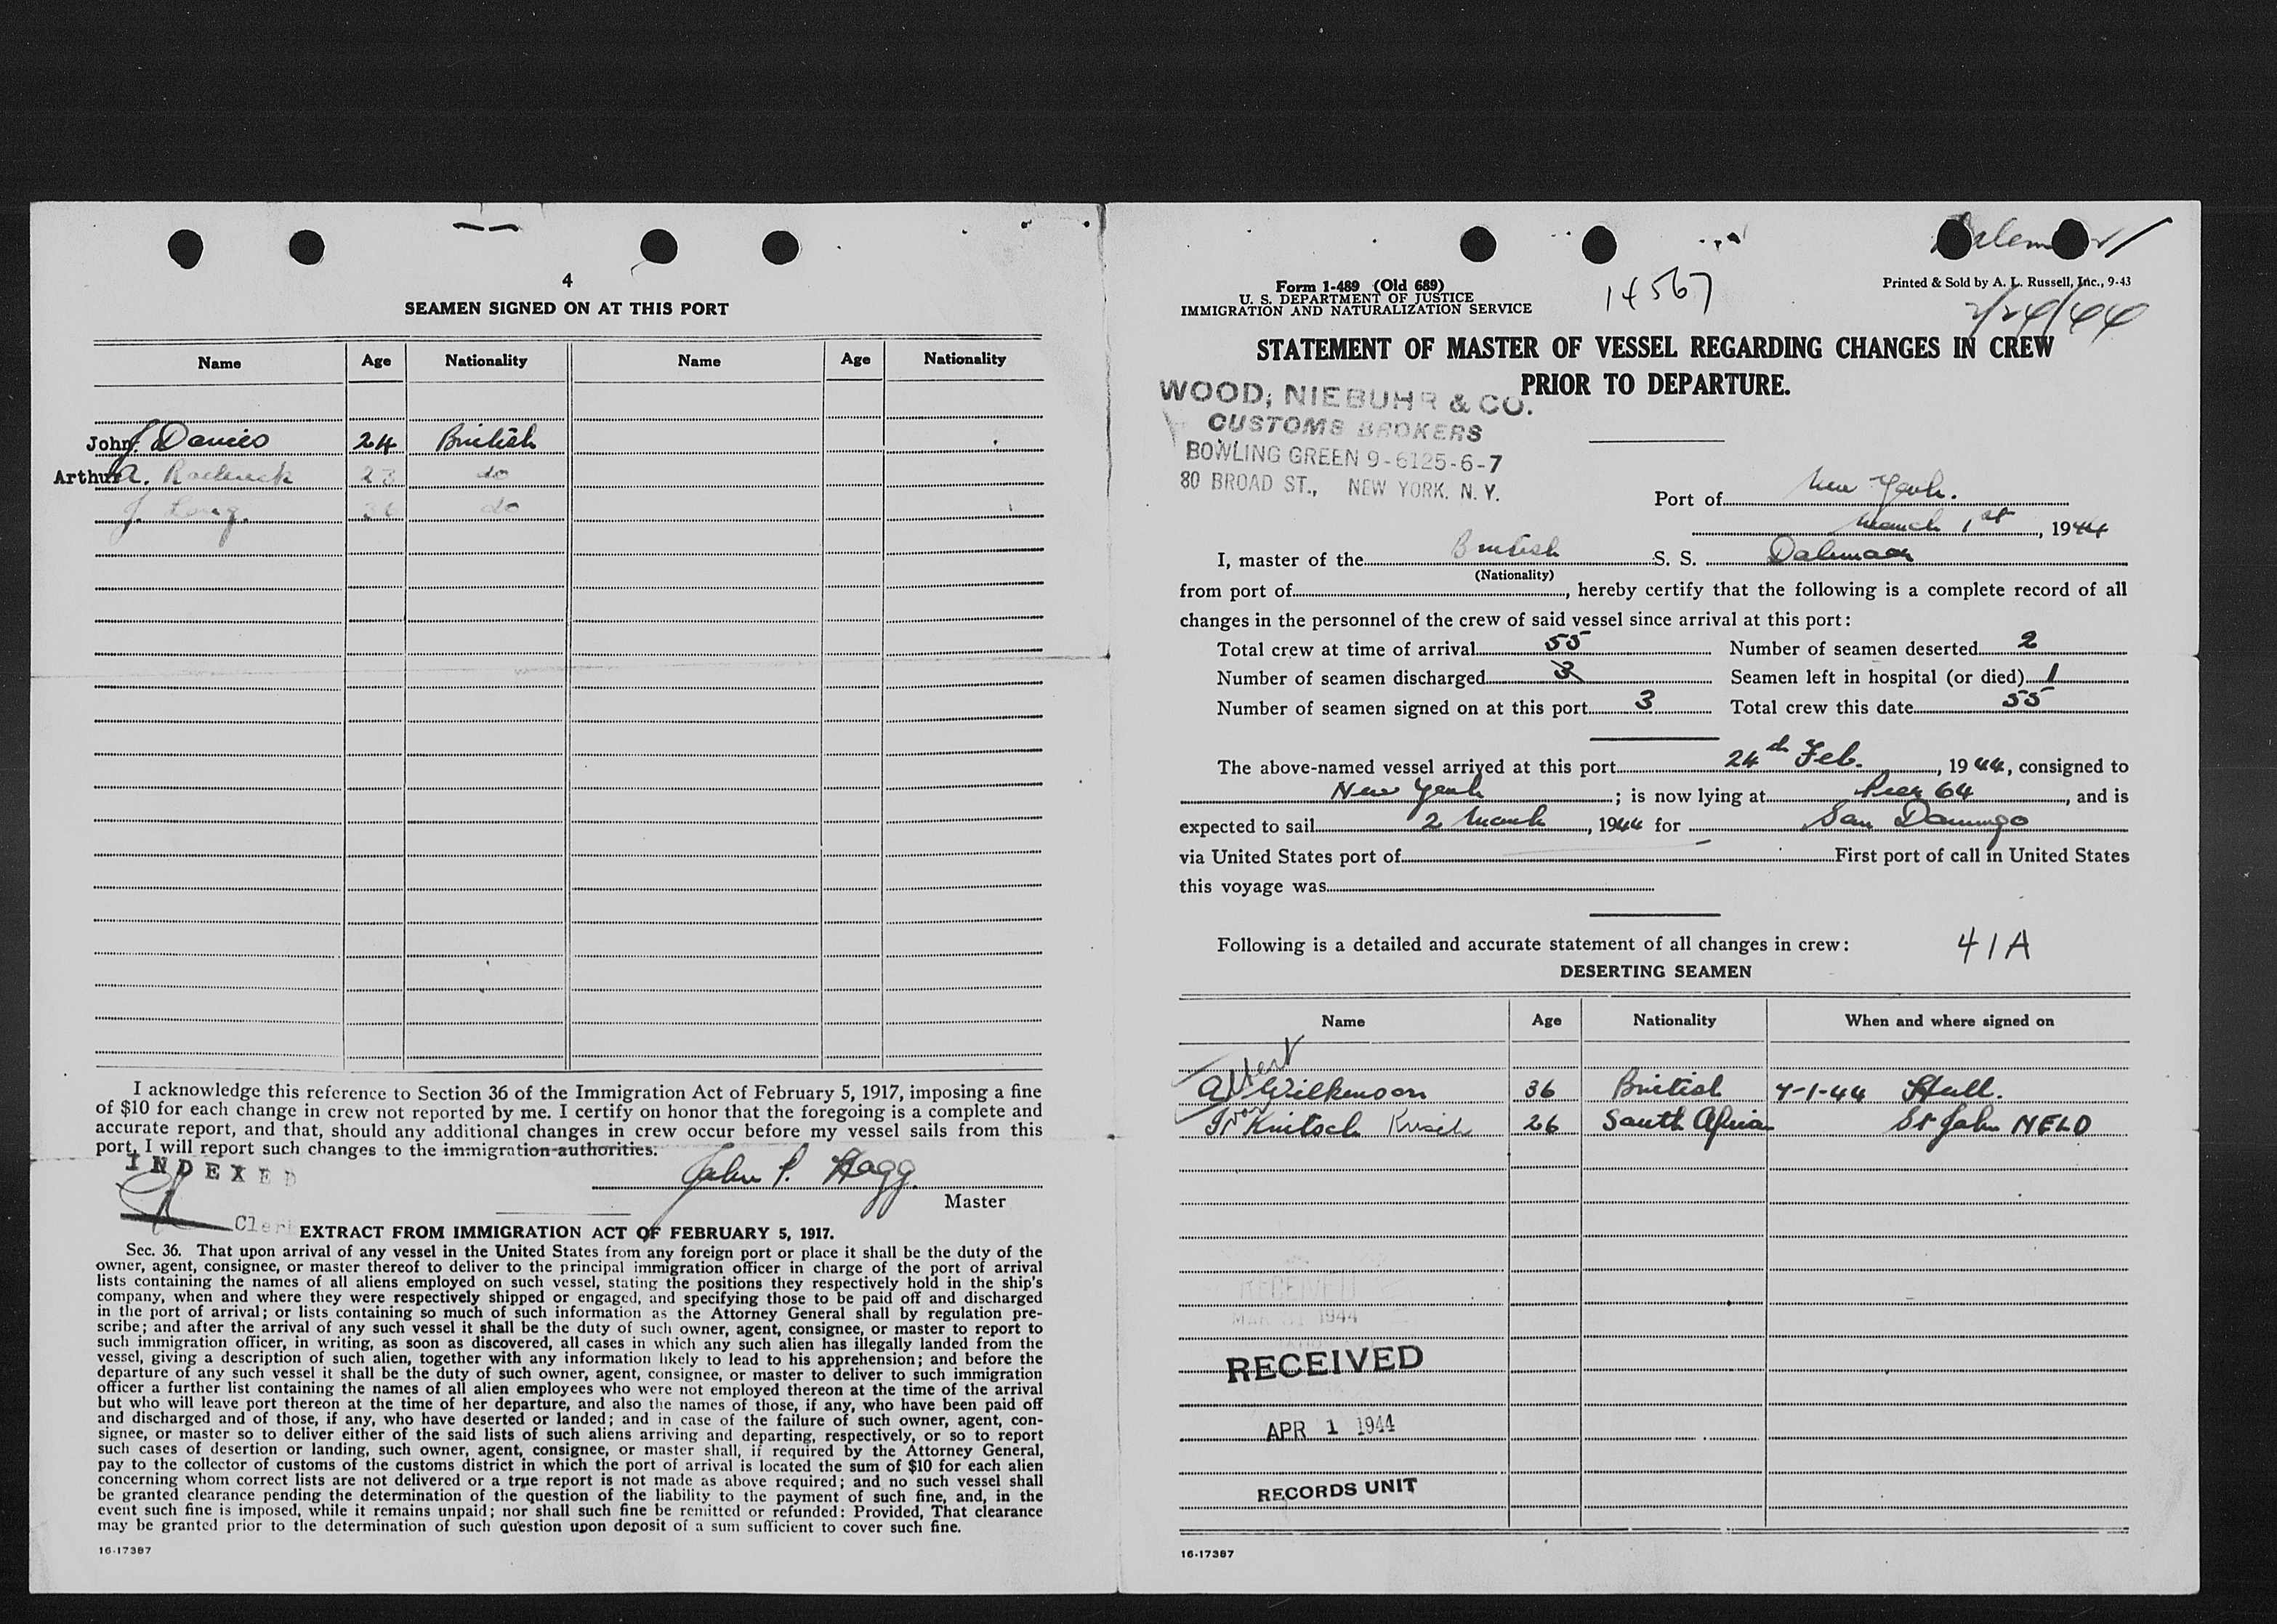 4
SEAMEN SIGNED ON AT THIS PORT
Name Age Nationality Name Age Nationality
John J. Davies 24 British
Arthur A. Roderick 23 do
J. Long. 36 do
I acknowledge this reference to Section 36 of the Immigration Act of February 5, 1917, imposing a fine
of $10 for each change in crew not reported by me. I certify on honor that the foregoing is a complete and
accurate report, and that, should any additional changes in crew occur before my vessel sails from this
port, I will report such changes to the immigration authorities.
INDEXED
John P. Hogg.
Master
Clerk
EXTRACT FROM IMMIGRATION ACT OF FEBRUARY 5, 1917.
Sec. 36. That upon arrival of any vessel in the United States from any foreign port or place it shall be the duty of the
owner, agent, consignee, or master thereof to deliver to the principal immigration officer in charge of the port of arrival
lists containing the names of all aliens employed on such vessel, stating the positions they respectively hold in the ship's
company, when and where they were respectively shipped or engaged, and specifying those to be paid off and discharged
in the port of arrival; or lists containing so much of such information as the Attorney General shall by regulation pre-
scribe; and after the arrival of any such vessel it shall be the duty of such owner, agent, consignee, or master to report to
such immigration officer, in writing, as soon as discovered, all cases in which any such alien has illegally landed from the
vessel, giving a description of such alien, together with any information likely to lead to his apprehension; and before the
departure of any such vessel it shall be the duty of such owner, agent, consignee, or master to deliver to such immigration
officer a further list containing the names of all alien employees who were not employed thereon at the time of the arrival
but who will leave port thereon at the time of her departure, and also the names of those, if any, who have been paid off
and discharged and of those, if any, who have deserted or landed; and in case of the failure of such owner, agent, con-
signee, or master so to deliver either of the said lists of such aliens arriving and departing, respectively, or so to report
such cases of desertion or landing, such owner, agent, consignee, or master shall, if required by the Attorney General,
pay to the collector of customs of the customs district in which the port of arrival is located the sum of $10 for each alien
concerning whom correct lists are not delivered or a true report is not made as above required; and no such vessel shall
be granted clearance pending the determination of the question of the liability to the payment of such fine, and, in the
event such fine is imposed, while it remains unpaid; nor shall such fine be remitted or refunded: Provided, That clearance
may be granted prior to the determination of such question upon deposit of a sum sufficient to cover such fine.
16-17387
Form 1-489 (Old 689)
U. S. DEPARTMENT OF JUSTICE
IMMIGRATION AND NATURALIZATION SERVICE
14567
Printed & Sold by A. L. Russell, Inc., 9-43
2/24/44
STATEMENT OF MASTER OF VESSEL REGARDING CHANGES IN CREW
PRIOR TO DEPARTURE.
WOOD, NIEBUHR & CO.
CUSTOMS BROKERS
BOWLING GREEN 9-6125-6-7
80 BROAD ST., NEW YORK, N. Y.
Port of New York.
March 1st, 1944
I, master of the British S. S. Dalemoor
(Nationality)
from port of, hereby certify that the following is a complete record of all
changes in the personnel of the crew of said vessel since arrival at this port:
Total crew at time of arrival 55 Number of seamen deserted 2
Number of seamen discharged 3 Seamen left in hospital (or died) 1
Number of seamen signed on at this port 3 Total crew this date 55
The above-named vessel arrived at this port 24th Feb., 1944, consigned to
New York; is now lying at Pier 64, and is
expected to sail 2 March, 1944 for San Domingo
via United States port of First port of call in United States
this voyage was
Following is a detailed and accurate statement of all changes in crew: 41A
DESERTING SEAMEN
Name Age Nationality When and where signed on
Albert
Wilkinson 36 British 7-1-44 Hull.
26 South African St John NFLD
RECEIVED
1944
RECEIVED
APR 1 1944
RECORDS UNIT
16-17387